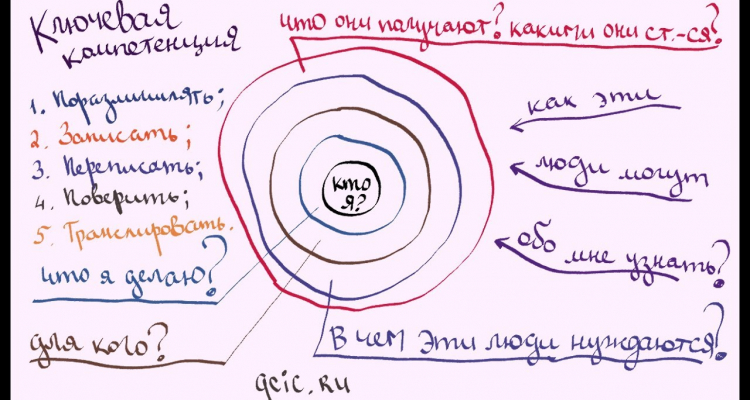 Ключевая
компетенция
что они получают? какими они ст.-ся?
1. Поразмышлять;
2. Записать;
3. Переписать;
4. Поверить;
5. Транслировать.
как эти
люди могут
обо мне узнать?
кто
я?
что я делаю?
для кого?
В чем эти люди нуждаются?
gcic.ru